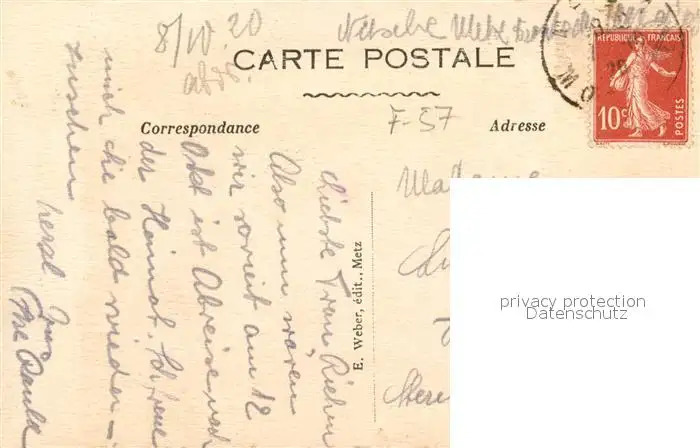 8/10 20
Metz
CARTE POSTALE
REPUBLIQUE FRANÇAISE
10c
POSTES
F-57
Correspondance
Adresse
Madame
E. Weber, édit., Metz
Liebste Frau
Also nun wären
wir soweit am 12
Okt ist Abreise nach
der Heimat. Ich freue
mich die bald wieder-
zusehen
herzl.
Ihre
privacy protection
Datenschutz